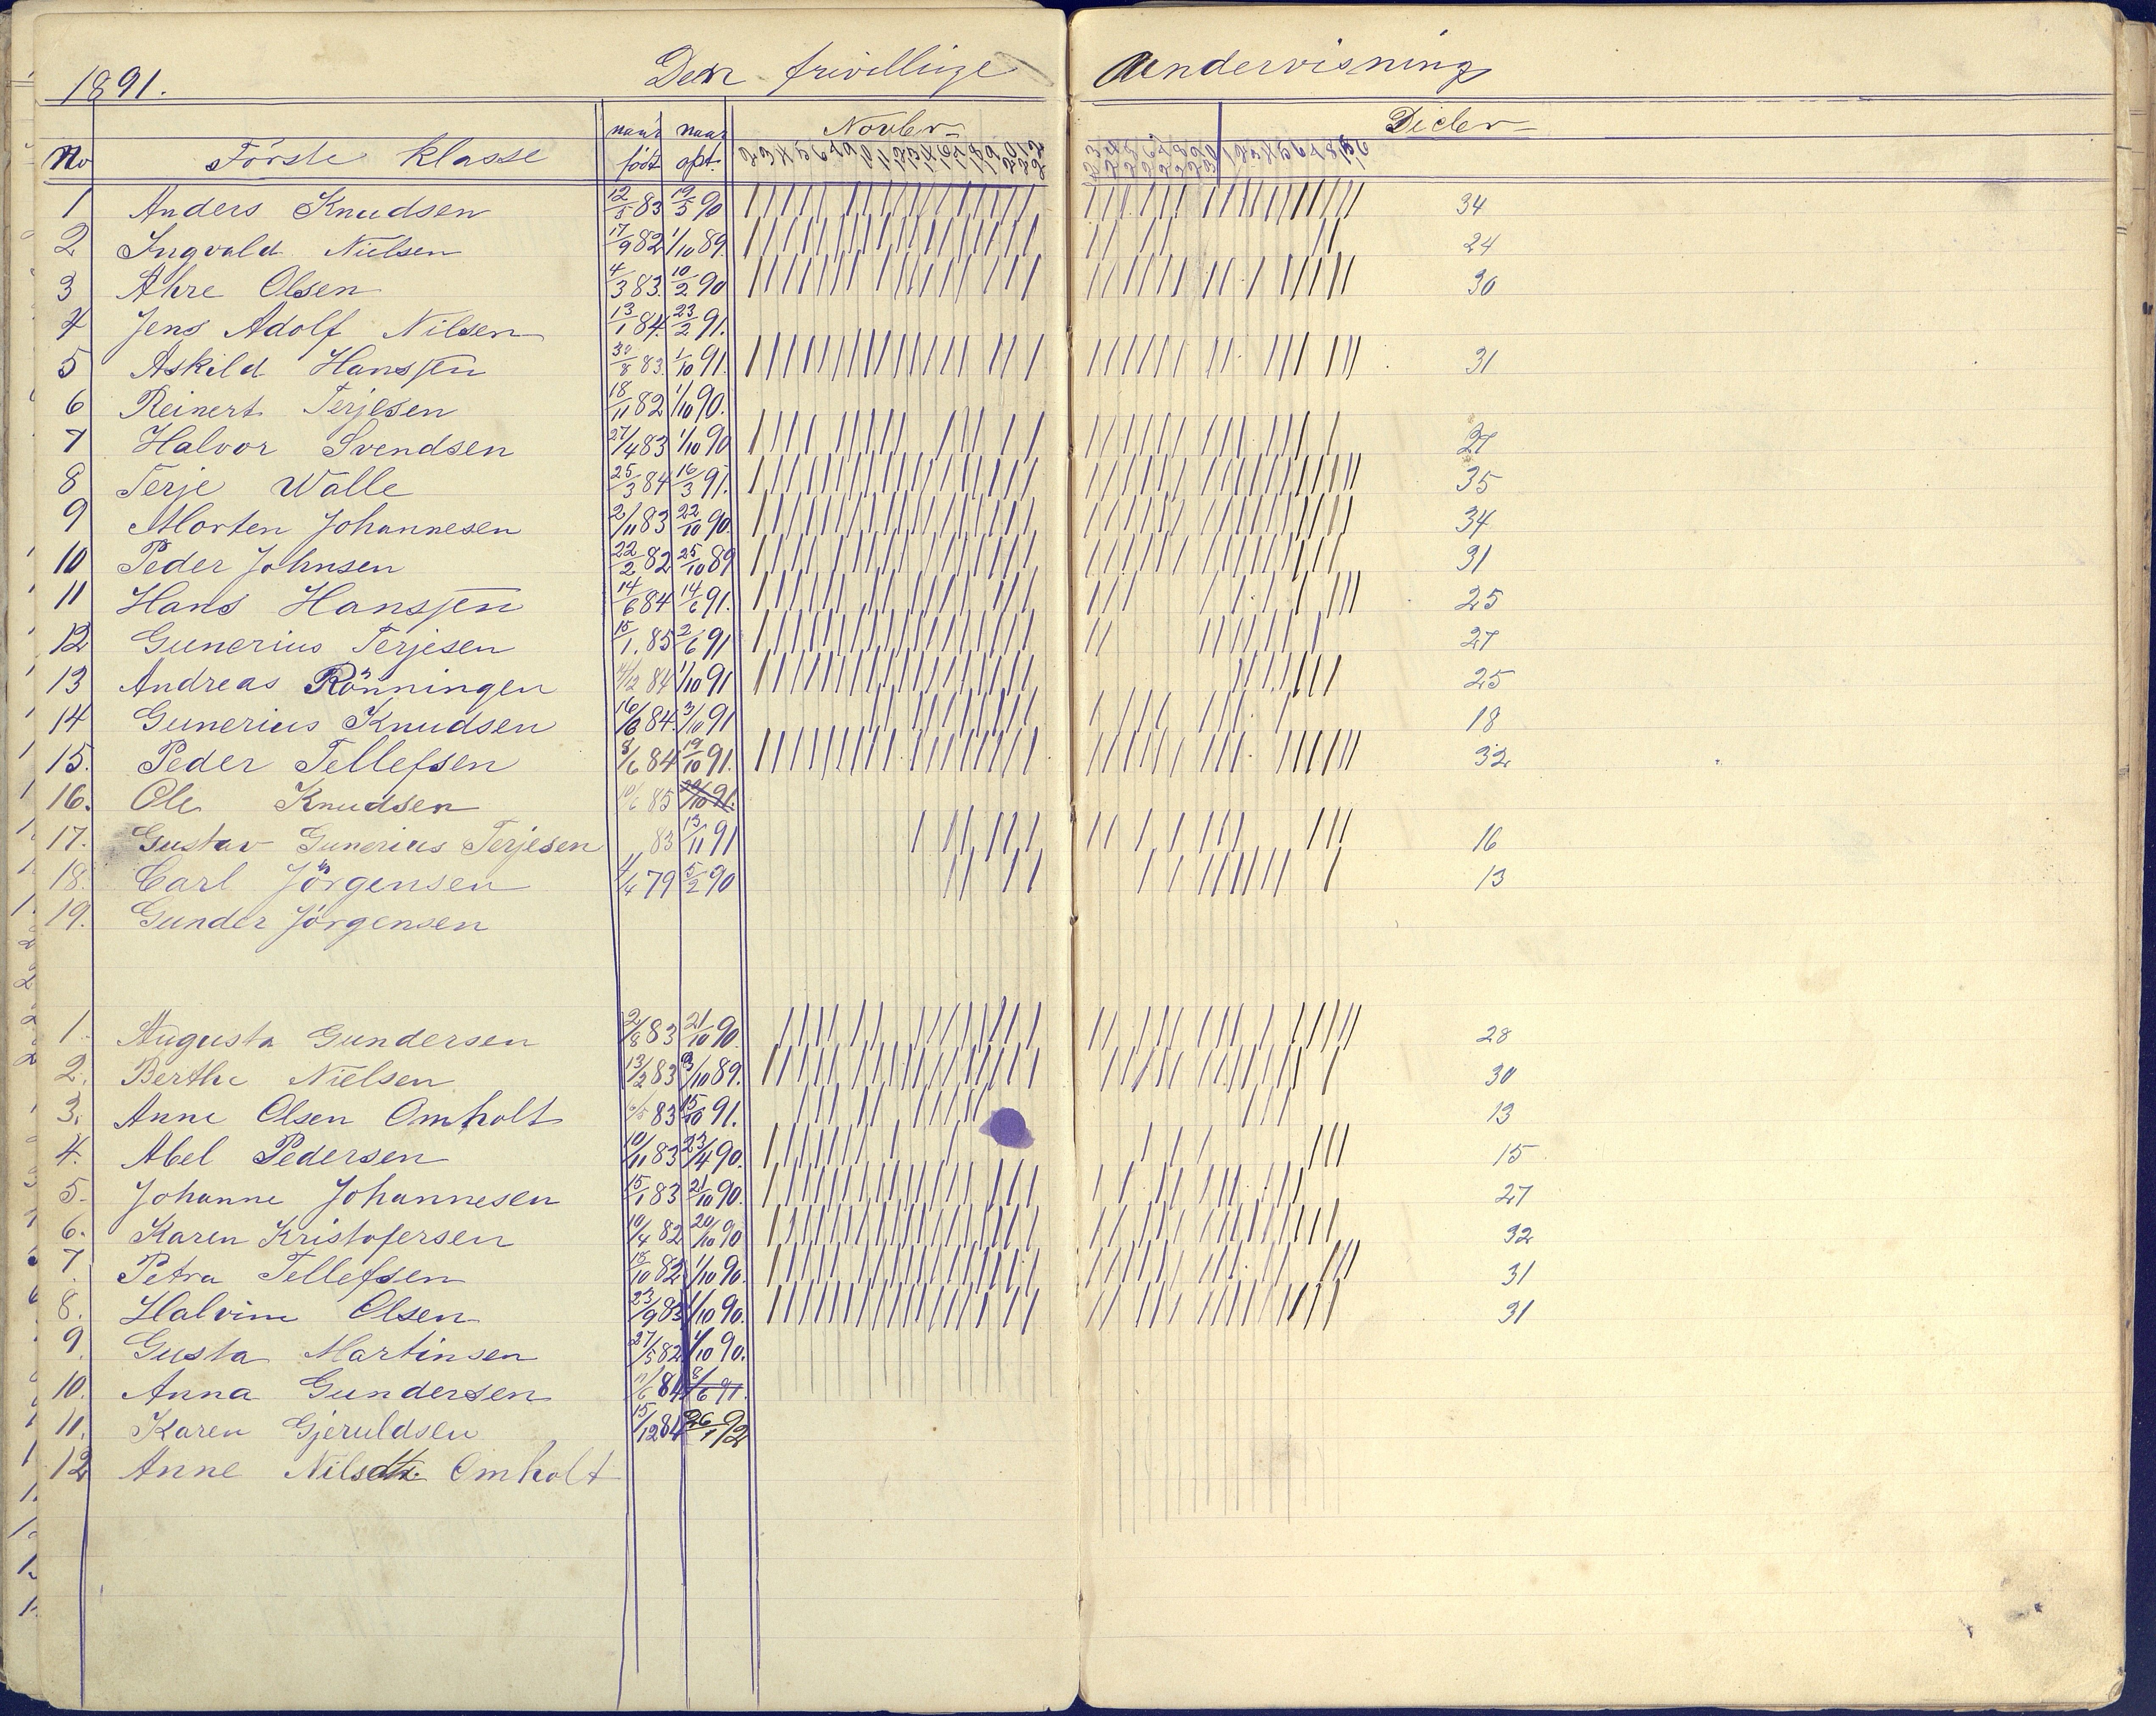 1891. Den frivillige Undervisning
naar naar Novbr Decbr
No Förste Klasse født opt.
1 Anders Knudsen 12/5 83 19/5 90 34
2 Ingvald Nielsen 17/9 82 1/10 89. 24
3 Ahre Olsen 4/3 83. 10/2 90 30
4 Jens Adolf Nilsen 13/1 84. 23/2 91.
5 Askild Hanssen 30/8 83. 1/10 91. 31
6 Reinert Terjesen 18/11 82 1/10 90.
7 Halvor Svendsen 27/4 83 1/10 90 27
8 Terje Walle 25/3 84 16/3 91. 35
9 Morten Johannesen 2/11 83 22/10 90. 34
10 Peder Johnsen 22/2 82 25/10 89 31
11 Hans Hanssen 14/6 84 14/6 91. 25
12 Gunerius Terjesen 15/1. 85 2/6 91 27
13 Andreas Rönningen 14/12 84 1/10 91 25
14 Gunerius Knudsen 16/6 84. 3/10 91 18
15. Peder Tellefsen 8/6 84 19/10 91. 32
16. Ole Knudsen 10/6 85 20/10 91.
17. Gustav Gunerius Terjesen 83 13/11 91 16
18. Carl Jörgensen 11/4 79 5/2 90 13
19. Gunder Jörgensen
1. Augusta Gundersen 2/8 83 21/10 90. 28
2. Berthe Nielsen 13/2 83 3/10 89. 30
3. Anne Olsen Omholt 83 15/10 91. 13
4. Abel Pedersen 10/11 83 23/4 90. 15
5. Johanne Johannesen 15/1 83 21/10 90. 27
6. Karen Kristofersen 10/4 82 20/10 90 32
7. Petra Tellefsen 18/10 82 1/10 90. 31
8. Halvine Olsen 23/9 83 1/10 90. 31
9. Gusta Martinsen 27/5 82 1/10 90.
10. Anna Gundersen 11/6 84 8/6 91.
11. Karen Gjeruldsen 15/12 84 26/1 92
12 Anne Nilsdtr. Omholt